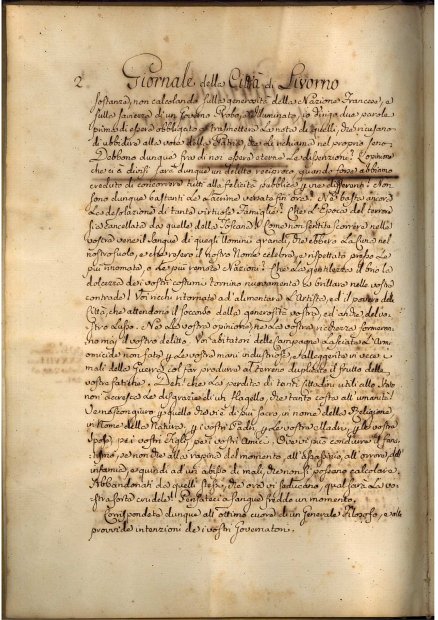 2 Giornale della Città di Livorno
sostanze, non calcolando sulla generosità della Nazione Francese, e
sulla saviezza d'un Governo Probo, e Illuminato, io dirigo due parole
prima di essere obbligato a trasmettere la nota di quelli, che ricusano
di ubbidire alla voce della Patria, che li richiama nel proprio seno.
Debbono dunque fra di noi essere eterne le dissenzioni? L'opinione
che ci à divisi sarà dunque un delitto reciproco, quando forse abbiamo
creduto di concorrere tutti alla felicità pubblica per vie differenti? Non
sono dunque bastanti le lacrime versate fin ora? Nè basta ancora
la desolazione di tante virtuose Famiglie? Che l'Epoca del terrore
sia cancellata da quelle della Toscana! Come non sentite scorrere nelle
vostre vene il sangue di quegli Uomini grandi, che ebbero la cuna nel
nostro suolo, e che resero il vostro Nome celebre, e rispettato presso le
più rinomate, e le più remote Nazioni? Che la gentilezza il tono la
dolcezza dei vostri costumi tornino nuovamente a brillare nelle vostre
contrade! Voi ricchi ritornate ad alimentare l'Artista, ed il povero delle
Città, che attendono il soccorso della generosità vostra, ed anche del
vostro Lusso. Nè le vostre opinioni, nè la vostra ricchezza formeran-
no mai il vostro delitto. Voi abitatori delle campagne lasciate l'Armi
omicide non fate per le vostre mani industriose, e alleggerite in vece i
mali della Guerra col far produrre al terreno duplicato il frutto delle
vostre fatiche. Deh! che la perdita di tanti cittadini utili allo Stato
non accresca le disgrazie di un flagello, che tanto costa all'umanità!
Ve ne scongiuro per quello che vi è di più sacro in nome della Religione
in nome della Natura, per i vostri Padri, per le vostre Madri, per le vostre
Spose, per i vostri Figli, per i vostri Amici. Che vi può condurre il fana-
tismo, se non che alla rapina del momento, all'assassinio, all'orrore, dell'
infamia, e quindi ad un abisso di mali, che non si possono calcolare.
Abbandonati da quelli stessi, che ora vi seducano, qual sarà la vo-
stra sorte crudele! Pensateci a sangue freddo un momento.
Corrispondete dunque all'ottimo cuore di un Generale Filosofo, e alle
provvide intenzioni de i vostri Governatori.